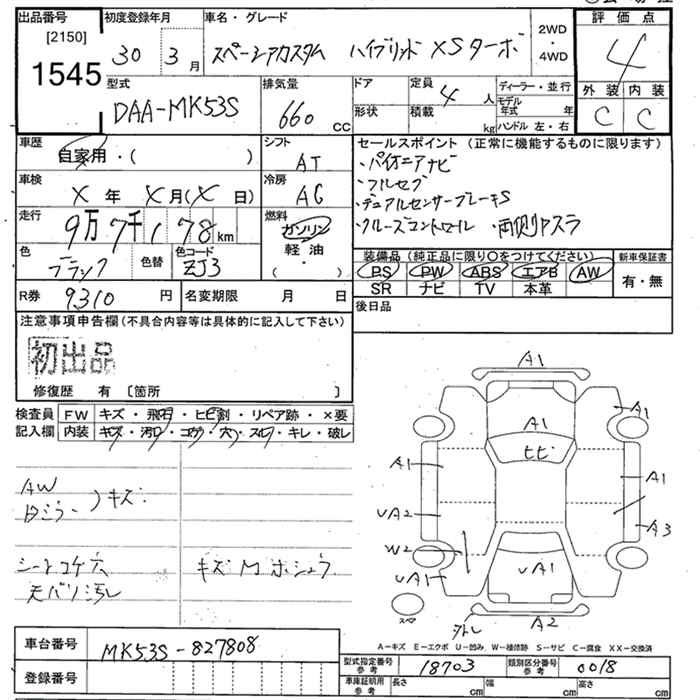 出品番号
[2150]
1545
初度登録年月
30 3月
車名・グレード
スペーシアカスタム ハイブリッド XSターボ
2WD
・
4WD
評価点
4
外装 内装
C C
型式
DAA-MK53S
排気量
660 CC
ドア
形状
定員
4人
積載
kg
ディーラー・並行
モデル年式 年
ハンドル 左・右
車歴
自家用・( )
シフト
AT
車検
X年 X月(X日)
冷房
AC
走行
9万7千178km
燃料
ガソリン
軽油
( )
色
ブラック
色替
色コード
ZJ3
R券 9310円
名変期限 月 日
セールスポイント(正常に機能するものに限ります)
・パイオニアナビ
・フルセグ
・デュアルセンサーブレーキS
・クルーズコントロール ・両側パスラ
装備品(純正品に限り○をつけてください)
PS PW ABS エアB AW
SR ナビ TV 本革
新車保証書
有・無
後日品
注意事項申告欄(不具合内容等は具体的に記入して下さい)
初出品
修復歴 有 〔箇所 〕
検査員記入欄
FW キズ・飛石・ヒビ割・リペア跡・×要
内装 キズ・汚レ・コゲ・穴・スレ・キレ・破レ
AW
Dミラー )キズ
シートコゲ穴
天バリ汚れ
キズMホシュウ
A1
A1
A1
ヒビ
A1
A1
UA2
A3
W2
UA1
UA1
外し
A2
スペア
A-キズ E-エクボ U-凹み W-補修跡 S-サビ C-腐食 XX-交換済
車台番号
MK53S-827808
登録番号
型式指定番号 参考
18703
類別区分番号 参考
0018
車庫証明用 参考
長さ cm 幅 cm 高さ cm